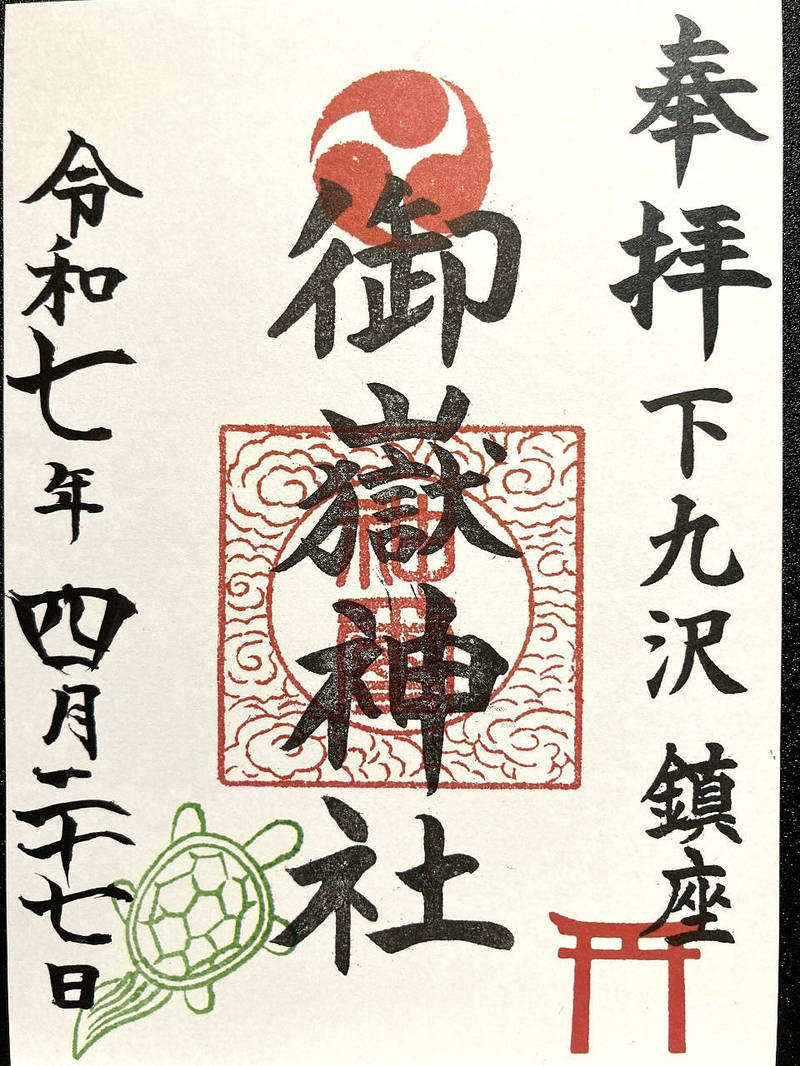 奉拝 下九沢 鎮座
御嶽神社
令和七年四月二十七日